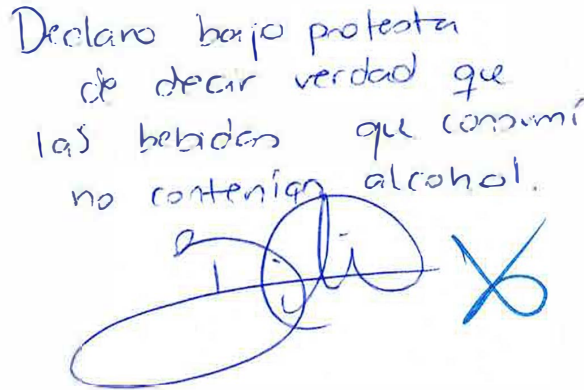 Declaro bajo protesta
de decir verdad que
las bebidas que consumí
no contenían alcohol.